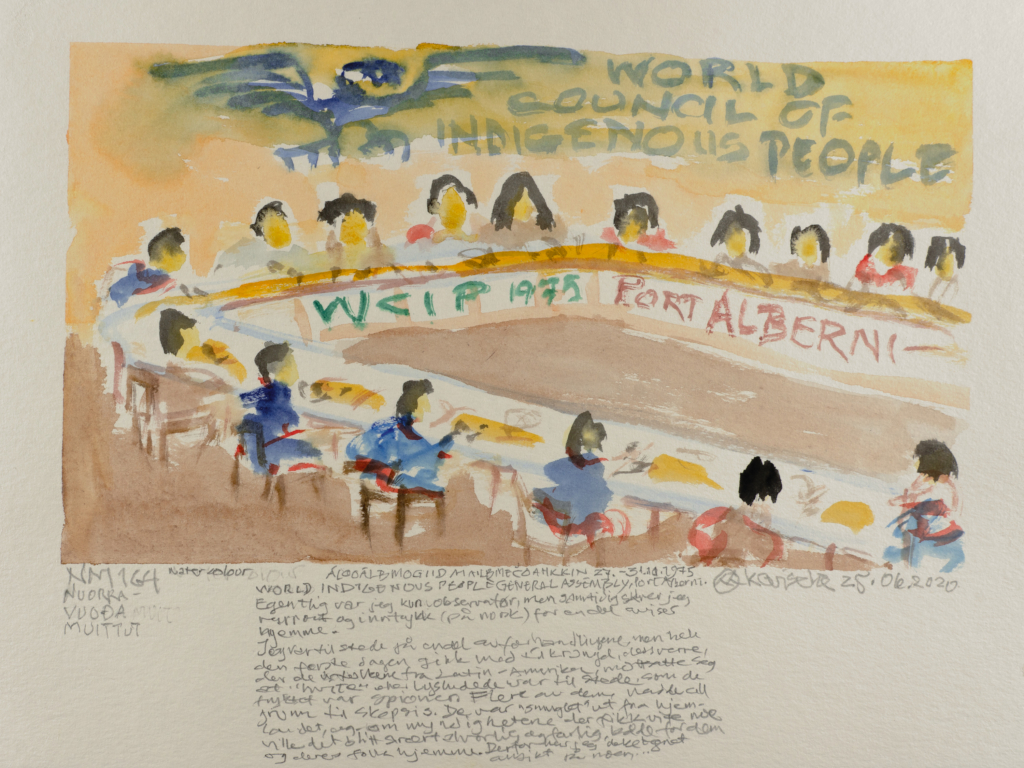 WORLD
COUNCIL OF
INDIGENOUS PEOPLE
WCIP 1975 PORT ALBERNI-
NM 164 watercolour
NUORRA-
VUOĐA
MUITTUT
ÁLGOÁLBMOGIID MÁILBMEČOAHKKIN 27.-31.10.1975
WORLD INDIGENOUS PEOPLE GENERAL ASSEMBLY, Port Alberni.
Egentlig var jeg kun observatør, men samtidig skrev jeg
rapport og inntrykk (på norsk) for en del aviser
hjemme.
25.06.2020
Jeg var til stede på en del av forhandlingene, men hele
den første dagen gikk med til krangel, dessverre,
der de fra Latin-Amerika, motsatte seg
at "hvite" var til stede, som de
fryktet var spioner. Flere av dem hadde all
grunn til skepsis. De var "smuglet" ut fra hjem-
landet, og om myndighetene der fikk vite noe
ville det blitt svært alvorlig og farlig både for dem
og deres folk hjemme. Derfor har jeg ikke tegnet
ansikt på noen...